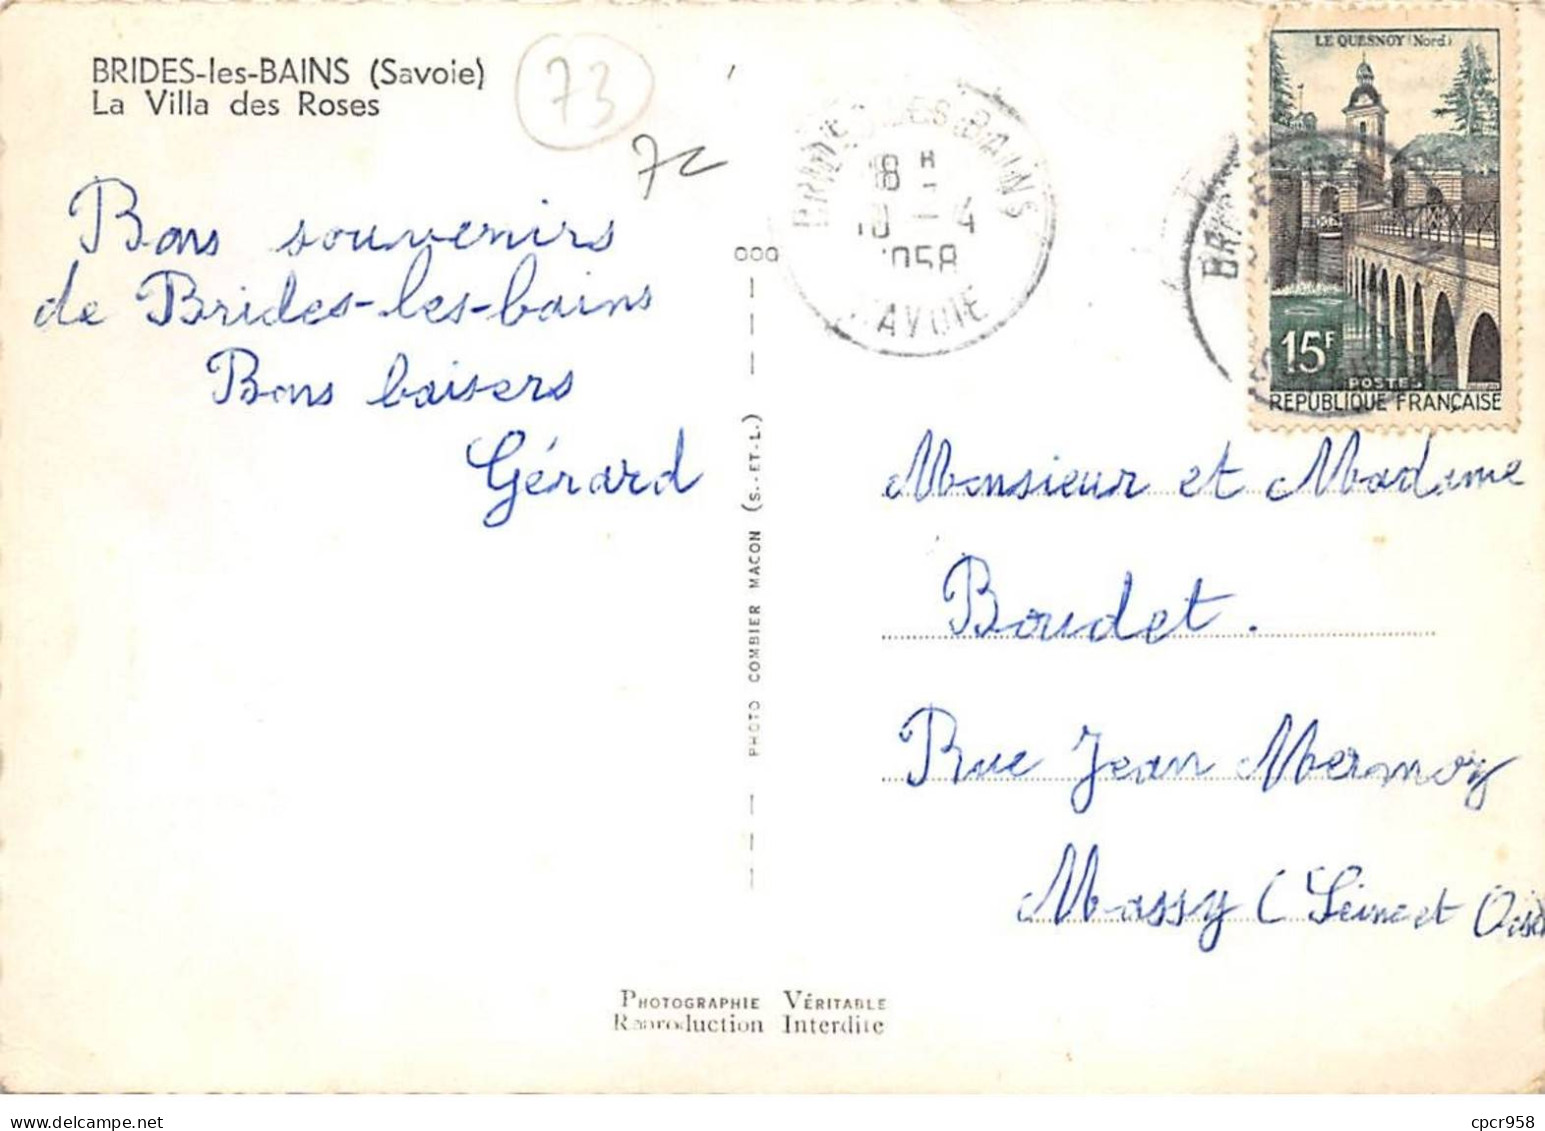 BRIDES-les-BAINS (Savoie)
La Villa des Roses
73
Bons souvenirs
de Brides-les-bains
Bons baisers
Gérard
BRIDES LES BAINS
18 H
10 - 4
1958
SAVOIE
LE QUESNOY (Nord)
15F
POSTES
REPUBLIQUE FRANÇAISE
PHOTO COMBIER MACON (S.-ET-L.)
Monsieur et Madame
Boudet.
Rue Jean Mermoz
Massy (Seine et Oise
PHOTOGRAPHIE VÉRITABLE
Reproduction Interdite
cpcr958